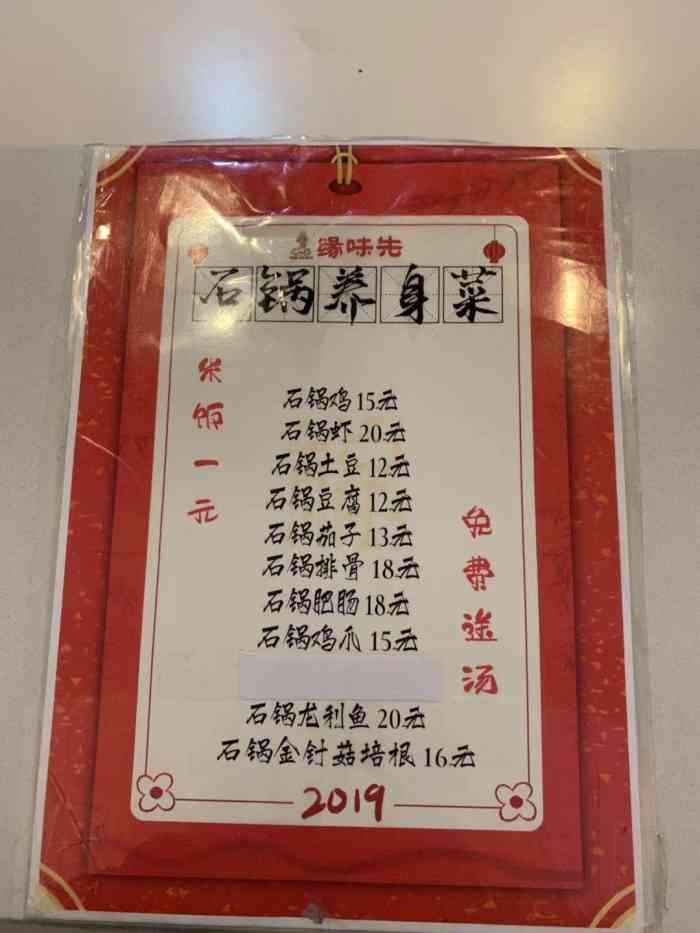 缘味先
石锅养身菜
米饭一元
石锅鸡 15元
石锅虾 20元
石锅土豆 12元
石锅豆腐 12元
石锅茄子 13元
石锅排骨 18元
石锅肥肠 18元
石锅鸡爪 15元
石锅龙利鱼 20元
石锅金针菇培根 16元
免费送汤
2019